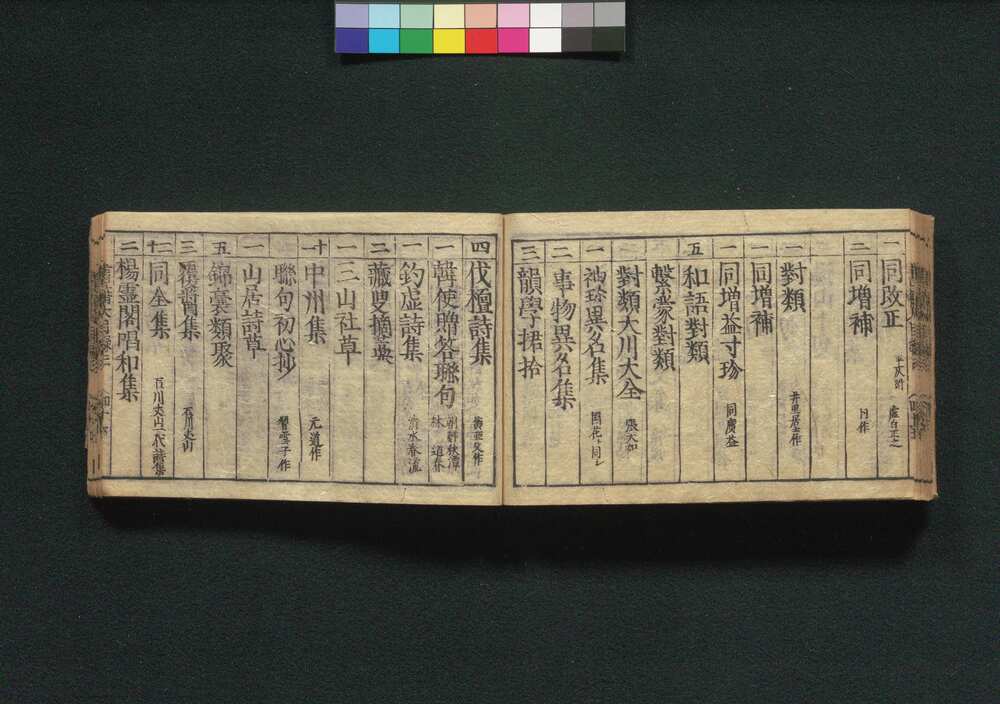 一 同改正 平仄附 虚白正之
二 同増補 同作
一 對類 井里居士作
一 同増補
一 同増益寸珍 同廣益
五 和語對類
繫蒙對類
對類大川大全 張天如
一 袖珍異名集
二 事物異名集
三 韻學捃拾
四 伐檀詩集 黄亜父作
一 韓使贈答聯句 朝鮮秋潭 林道春
一 釣虚詩集 清水春流
二 藏叟摘藁
一 三山社草
十 中州集 元道作
聯句初心抄 智雪子作
一 山居詩草
五 錦囊類聚
三 覆醬集 石川丈山
十二 同全集 石川丈山一代詩集
二 楊靈閣唱和集